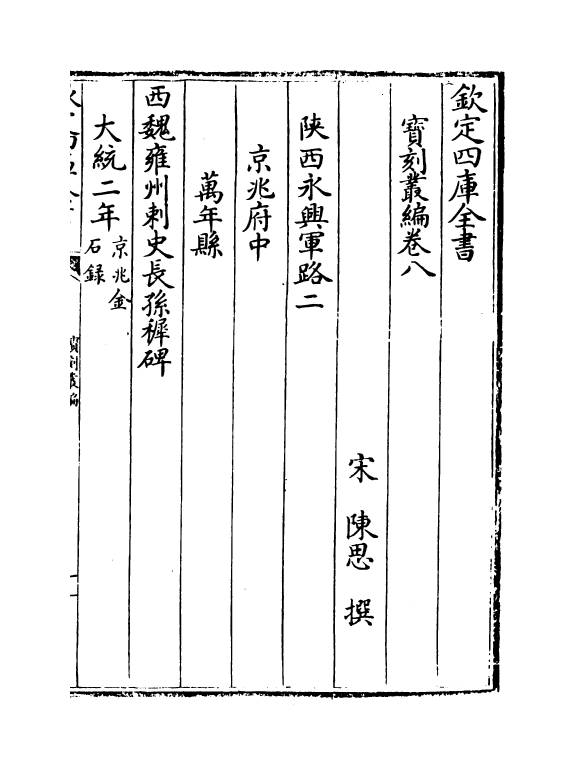 欽定四庫全書
寶刻叢編卷八
宋 陳思 撰
陝西永興軍路二
京兆府中
萬年縣
西魏雍州刺史長孫稺碑
大統二年 京兆金
石録